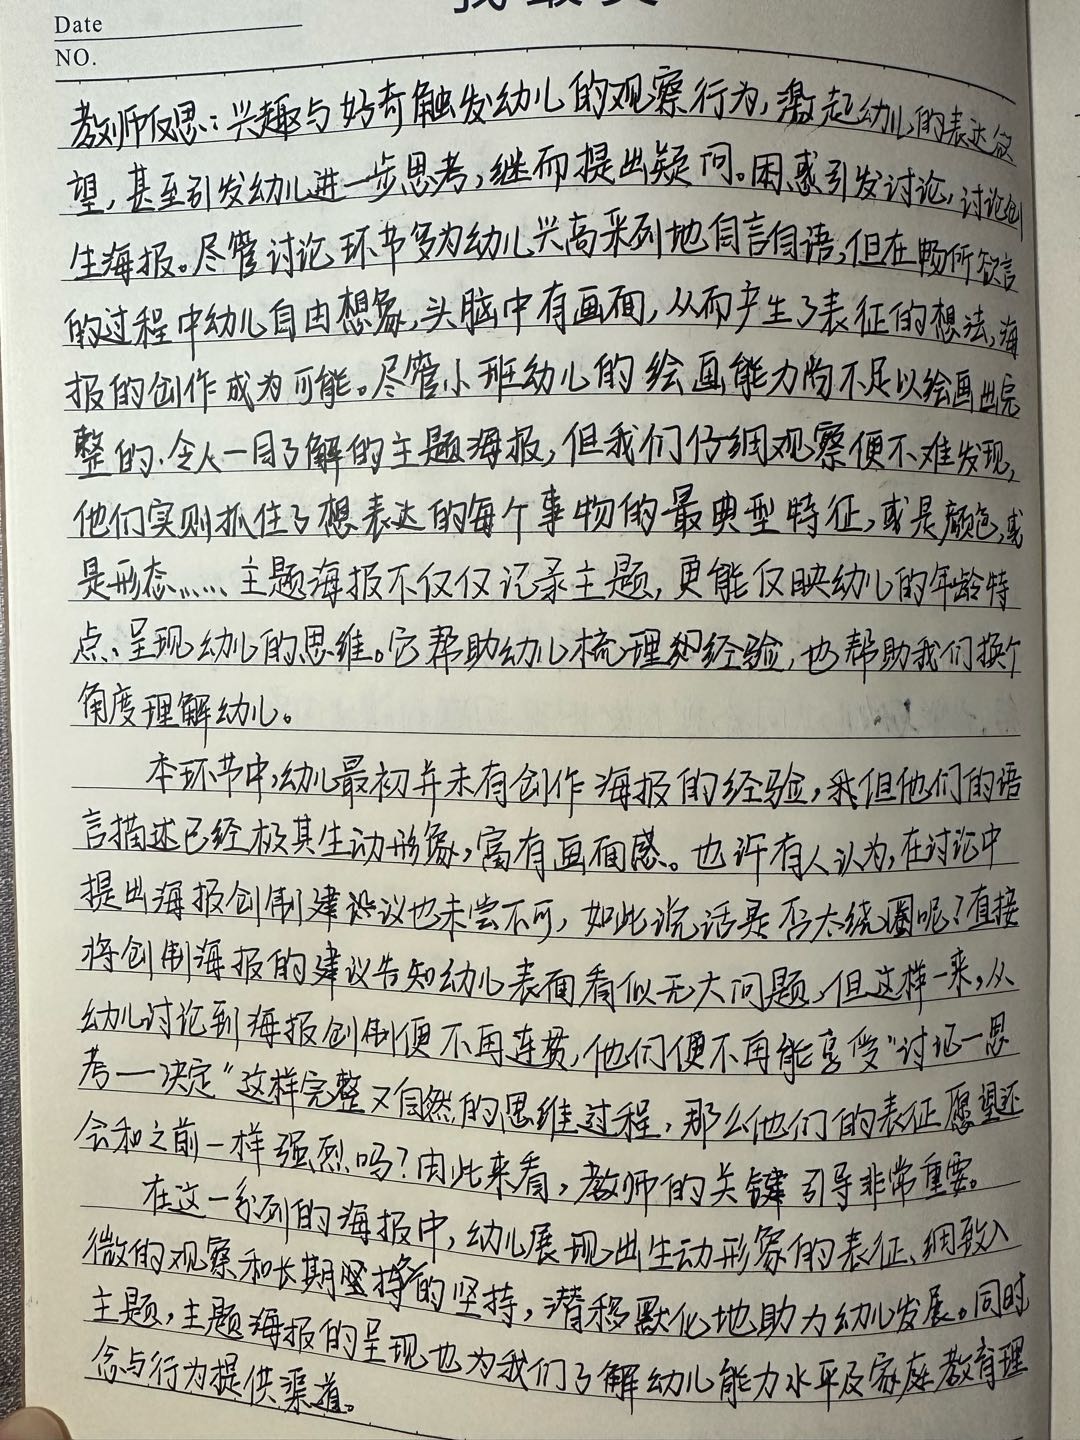 Date
NO.
教师反思：兴趣与好奇触发幼儿的观察行为，激起幼儿的表达欲
望，甚至引发幼儿进一步思考，继而提出疑问。困惑引发讨论，讨论创
生海报。尽管讨论环节多为幼儿兴高采列地自言自语，但在畅所欲言
的过程中幼儿自由想象，头脑中有画面，从而产生了表征的想法，海
报的创作成为可能。尽管小班幼儿的绘画能力尚不足以绘画出完
整的、令人一目了解的主题海报，但我们仔细观察便不难发现，
他们实则抓住了想表达的每个事物的最典型特征，或是颜色，或
是形态……主题海报不仅仅记录主题，更能反映幼儿的年龄特
点、呈现幼儿的思维。它帮助幼儿梳理经验，也帮助我们换个
角度理解幼儿。
本环节中，幼儿最初并未有创作海报的经验，但他们的语
言描述已经极其生动形象，富有画面感。也许有人认为，在讨论中
提出海报创制建议也未尝不可，如此说话是否太绕圈呢？直接
将创制海报的建议告知幼儿表面看似无大问题，但这样一来，从
幼儿讨论到海报创制便不再连贯，他们便不再能享受“讨论—思
考—决定”这样完整又自然的思维过程，那么他们的表征愿望还
会和之前一样强烈吗？由此来看，教师的关键引导非常重要。
在这一系列的海报中，幼儿展现出生动形象的表征、细致入
微的观察和长期的坚持，潜移默化地助力幼儿发展。同时
主题，主题海报的呈现也为我们了解幼儿能力水平及家庭教育理
念与行为提供渠道。